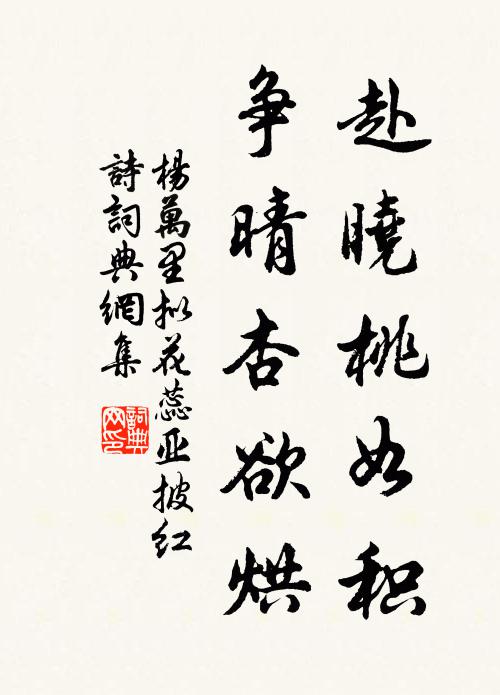 赴曉桃如积
争晴杏欲烘
楊萬里拟花蕊亚披红
詩詞典網集
詞典网印